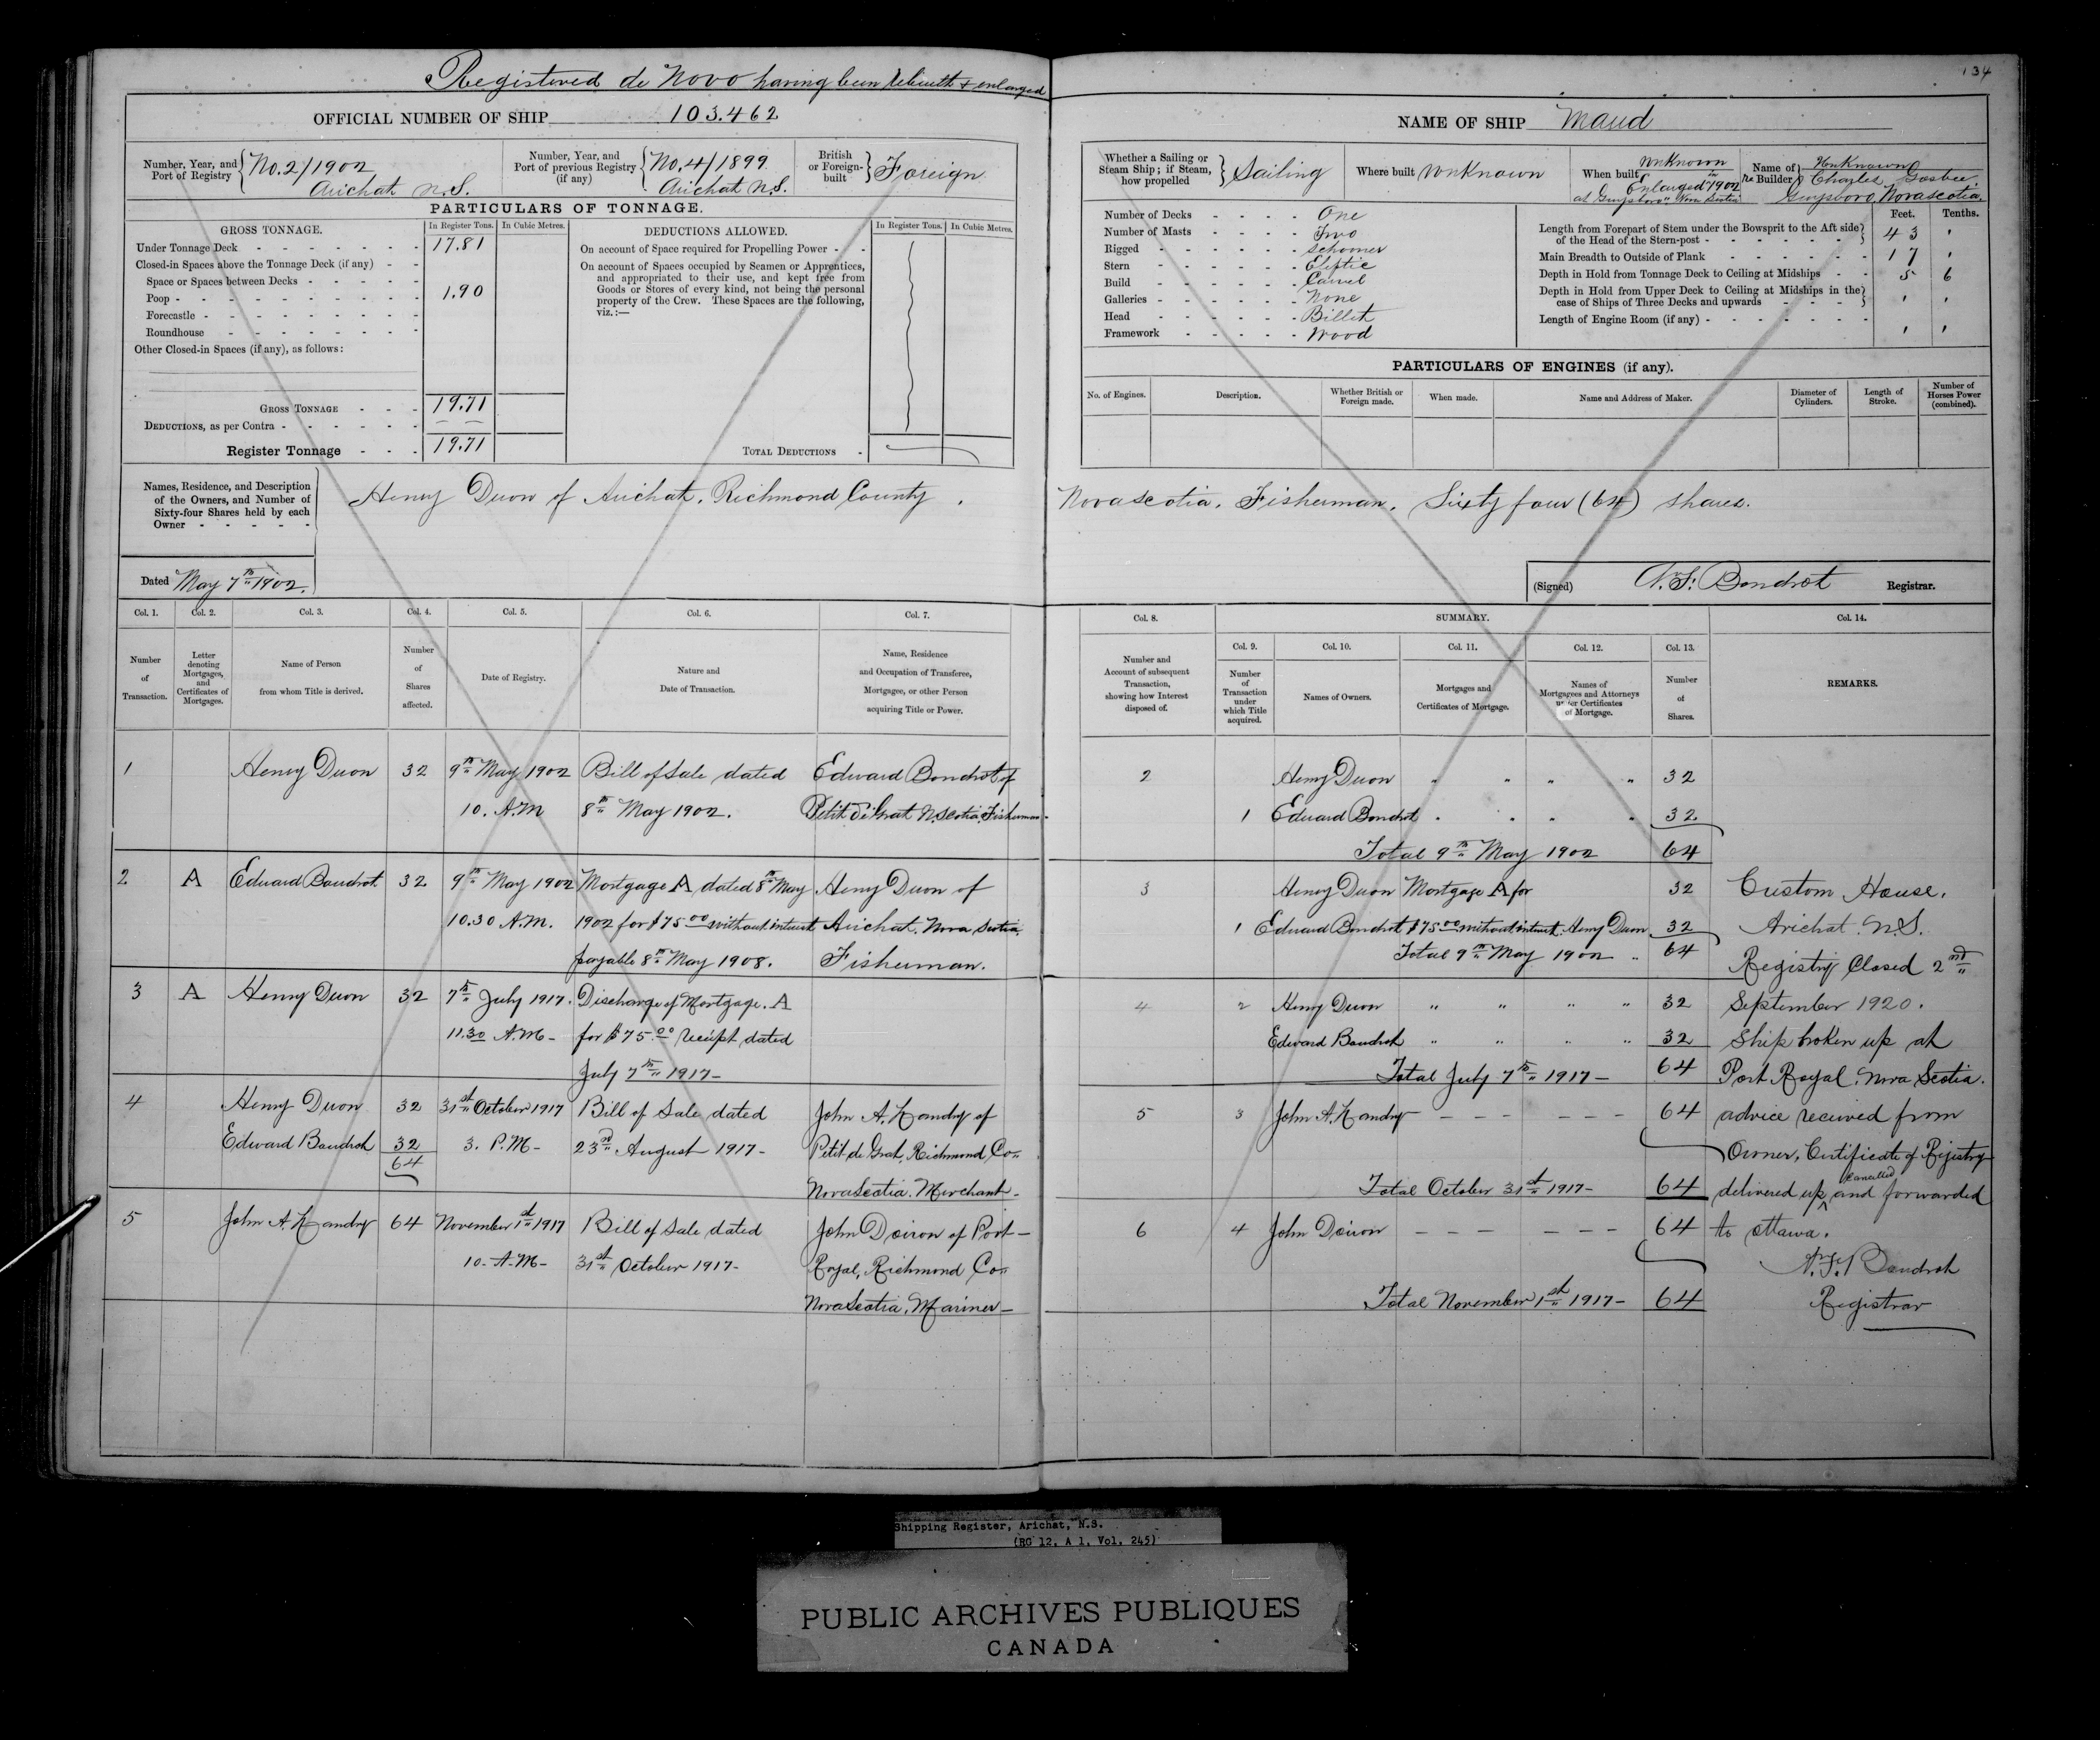 134
Registered de Novo having been rebuilt & enlarged
OFFICIAL NUMBER OF SHIP 103.462
Number, Year, and Port of Registry } No. 2/1902
Arichat N.S.
Number, Year, and Port of previous Registry (if any) { No. 4/1899
Arichat N.S.
British or Foreign-built } Foreign
PARTICULARS OF TONNAGE.
GROSS TONNAGE. In Register Tons. In Cubic Metres.
Under Tonnage Deck - - - 17.81
Closed-in Spaces above the Tonnage Deck (if any) - -
Space or Spaces between Decks - - -
Poop - - - 1.90
Forecastle - - -
Roundhouse - - -
Other Closed-in Spaces (if any), as follows:
GROSS TONNAGE - - - 19.71
DEDUCTIONS, as per Contra - - -
Register Tonnage - - - 19.71
DEDUCTIONS ALLOWED. In Register Tons. In Cubic Metres.
On account of Space required for Propelling Power - -
On account of Spaces occupied by Seamen or Apprentices,
and appropriated to their use, and kept free from
Goods or Stores of every kind, not being the personal
property of the Crew. These Spaces are the following,
viz.:—
TOTAL DEDUCTIONS -
Names, Residence, and Description
of the Owners, and Number of
Sixty-four Shares held by each
Owner - - - - -
Henry Duon of Arichat, Richmond County,
Dated May 7th 1902.
Col. 1. Col. 2. Col. 3. Col. 4. Col. 5. Col. 6. Col. 7.
Number of Transaction.
Letter denoting Mortgages, and Certificates of Mortgages.
Name of Person from whom Title is derived.
Number of Shares affected.
Date of Registry.
Nature and Date of Transaction.
Name, Residence and Occupation of Transferee, Mortgagee, or other Person acquiring Title or Power.
1 Henry Duon 32 9th May 1902 Bill of Sale dated Edward Bondrot of
10. A.M 8th May 1902. Petit de Grat N.Scotia Fisherman.
2 A Edward Boudrot 32 9th May 1902 Mortgage A dated 8th May Henry Duon of
10.30 A.M. 1902 for $75.00 without interest Arichat, Nova Scotia,
payable 8th May 1908. Fisherman.
3 A Henry Duon 32 7th July 1917. Discharge of Mortgage. A
11.30 A.M- for $75.00 receipt dated
July 7th 1917-
4 Henry Duon 32 31st October 1917 Bill of Sale dated John A. Landry of
Edward Boudrot 32 3. P.M- 23rd August 1917- Petit de Grat, Richmond Co.
64 Nova Scotia. Merchant.
5 John A. Landry 64 November 1st 1917 Bill of Sale dated John Doiron of Port-
10- A.M- 31st October 1917- Royal, Richmond Co.
Nova Scotia, Mariner-
NAME OF SHIP Maud
Whether a Sailing or Steam Ship; if Steam, how propelled } Sailing
Where built Unknown
When built { Unknown
Enlarged in 1902
at Guysboro" Nova Scotia
Name of Builder } Unknown
re Charles Gosbee
Guysboro, Nova Scotia.
Number of Decks - - - One
Number of Masts - - - Two
Rigged - - - Schooner
Stern - - - Eliptic
Build - - - Carvel
Galleries - - - None
Head - - - Billet
Framework - - - Wood
Feet. Tenths.
Length from Forepart of Stem under the Bowsprit to the Aft side
of the Head of the Stern-post - - - 43 '
Main Breadth to Outside of Plank - - - 17 '
Depth in Hold from Tonnage Deck to Ceiling at Midships - - 5 6
Depth in Hold from Upper Deck to Ceiling at Midships in the
case of Ships of Three Decks and upwards - - - ' '
Length of Engine Room (if any) - - - ' '
PARTICULARS OF ENGINES (if any).
No. of Engines. Description. Whether British or Foreign made. When made. Name and Address of Maker. Diameter of Cylinders. Length of Stroke. Number of Horses Power (combined).
Nova Scotia, Fisherman, Sixty four (64) shares.
(Signed) N.F. Bondrot Registrar.
Col. 8. SUMMARY. Col. 14.
Col. 9. Col. 10. Col. 11. Col. 12. Col. 13.
Number and Account of subsequent Transaction, showing how Interest disposed of.
Number of Transaction under which Title acquired.
Names of Owners.
Mortgages and Certificates of Mortgage.
Names of Mortgagees and Attorneys under Certificates of Mortgage.
Number of Shares.
REMARKS.
2 Henry Duon " " " " 32
1 Edward Bondrot " " " " 32
Total 9th May 1902 64
3 Henry Duon Mortgage A for 32
1 Edward Bondrot $75.00 without interest. Henry Duon 32
Total 9th May 1902 " 64
4 2 Henry Duon " " " " 32
Edward Boudrot " " " " 32
Total July 7th 1917- 64
5 3 John A. Landry - - - - - - 64
Total October 31st 1917- 64
6 4 John Doiron - - - - - - 64
Total November 1st 1917- 64
Custom House,
Arichat. N.S.
Registry Closed 2nd
September 1920.
Ship broken up at
Port Royal, Nova Scotia.
advice received from
Owner, Certificate of Registry
delivered up, cancelled and forwarded
to Ottawa.
N.F. Boudrot
Registrar
Shipping Register, Arichat, N.S.
(RG 12, A 1, Vol. 245)
PUBLIC ARCHIVES PUBLIQUES
CANADA